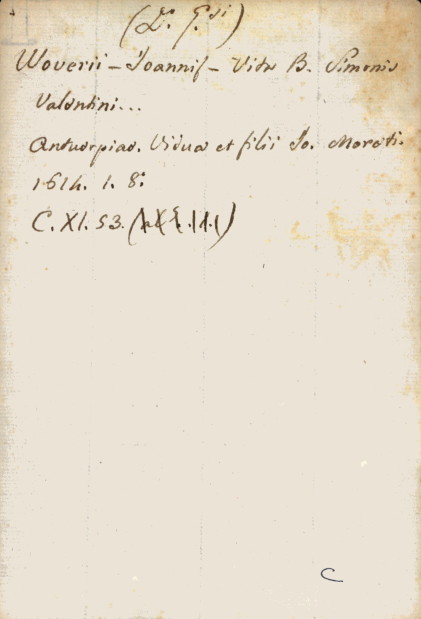 (D. G.si)
Woverii - Joannis - Vita B. Simonis
Valentini...
Antuerpiae. Vidua et filii Jo. Moreti.
1614. 1. 8.
C. XI. 53.
C